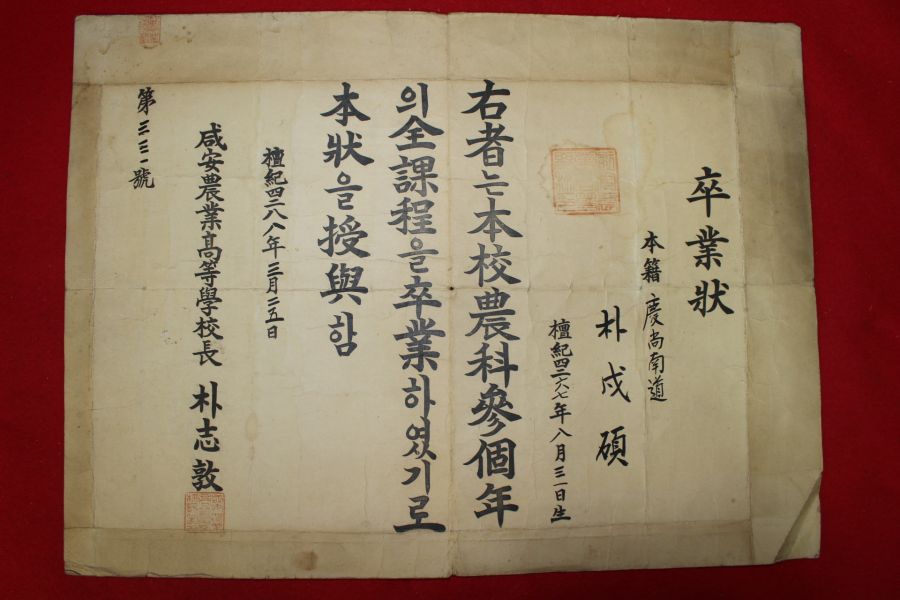 卒業狀
本籍 慶尙南道
朴戍碩
檀紀四二六七年八月三一日生
右者는本校農科參個年
의全課程을卒業하였기로
本狀을授與함
檀紀四二八八年三月二五日
咸安農業高等學校長 朴志敦
第三三一號